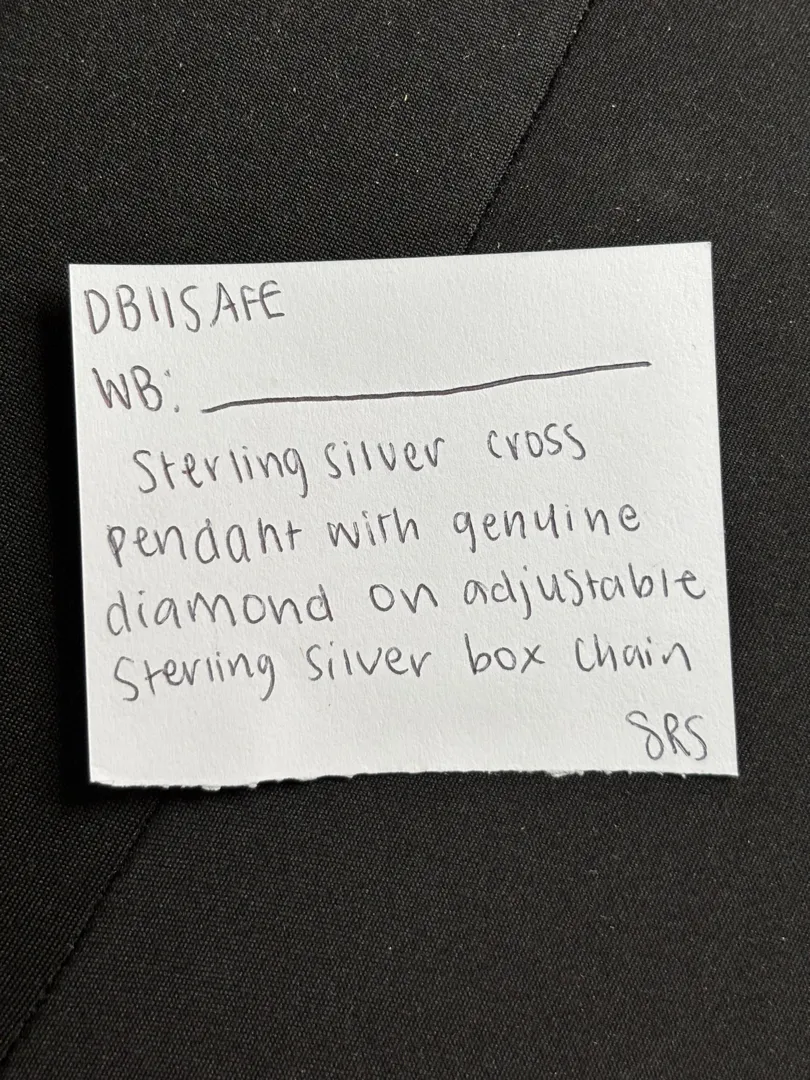 DB11SAFE
WB: ________
Sterling silver cross
pendant with genuine
diamond on adjustable
Sterling Silver box chain
SRS